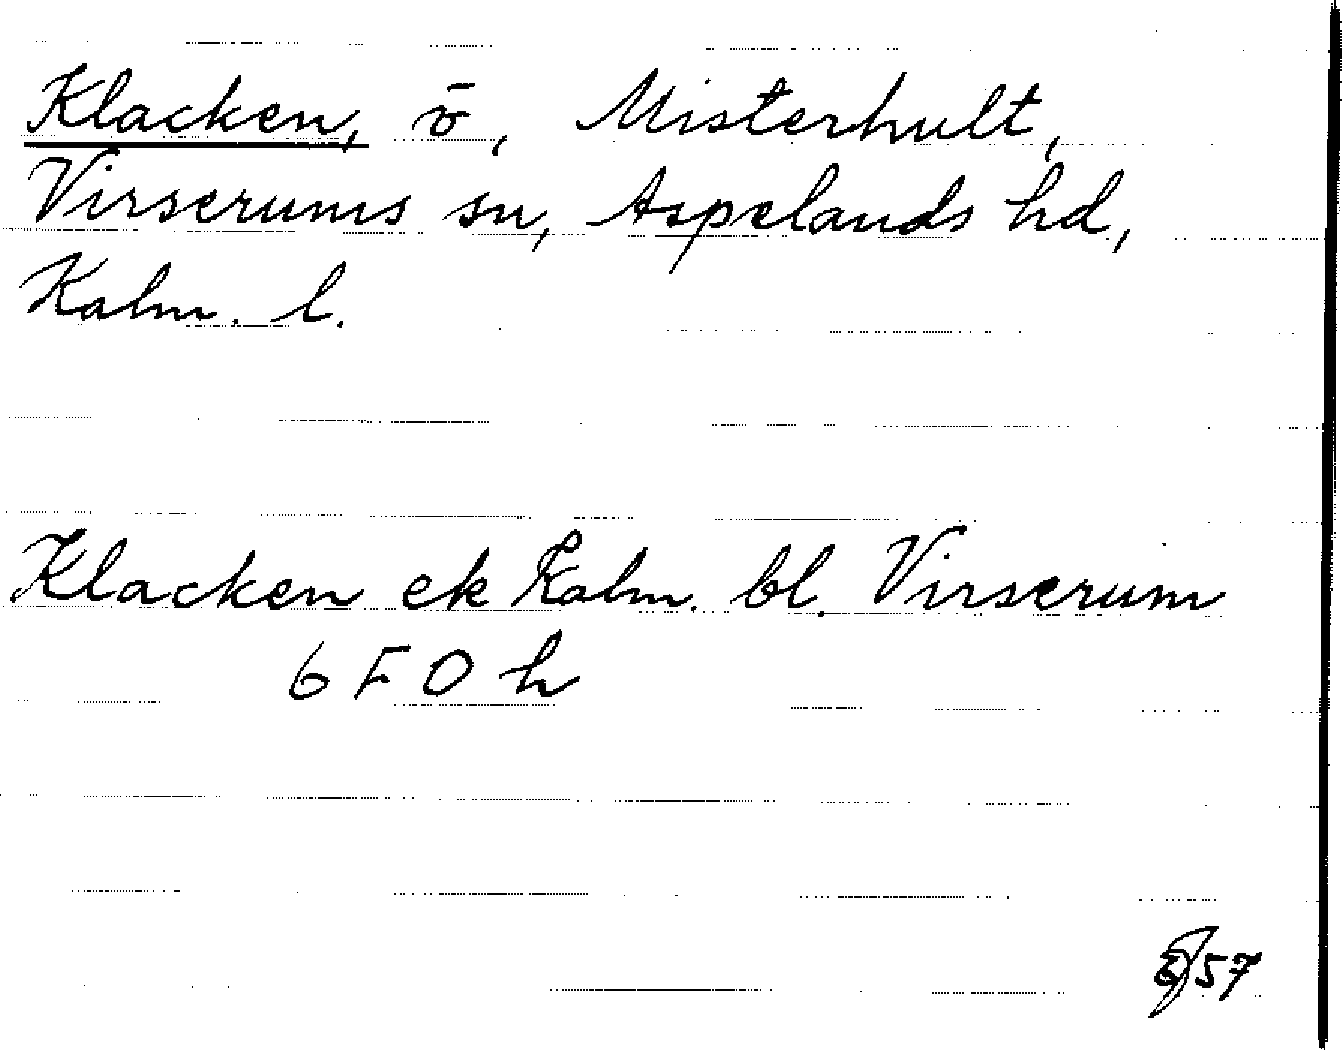 Klacken, ö, Misterhult,
Virserums sn, Aspelands hd,
Kalm. l.
Klacken ek Kalm. bl. Virserum
6 F O h
57